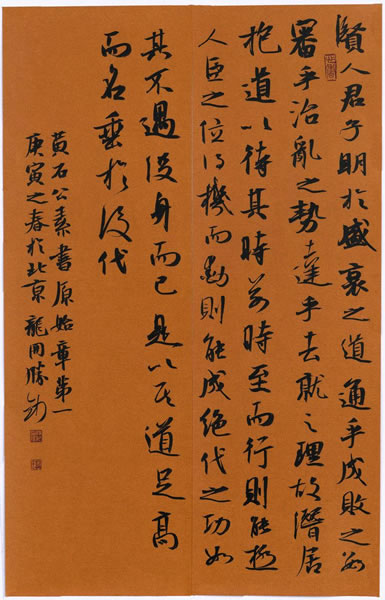 賢人君子明於盛衰之道通乎成敗之數
審乎治亂之勢達乎去就之理故潛居
抱道以待其時若時至而行則能極
人臣之位得機而動則能成絕代之功如
其不遇沒身而已是以其道足高
而名垂於後代
黃石公素書原始章第一
庚寅之春於北京龍開勝